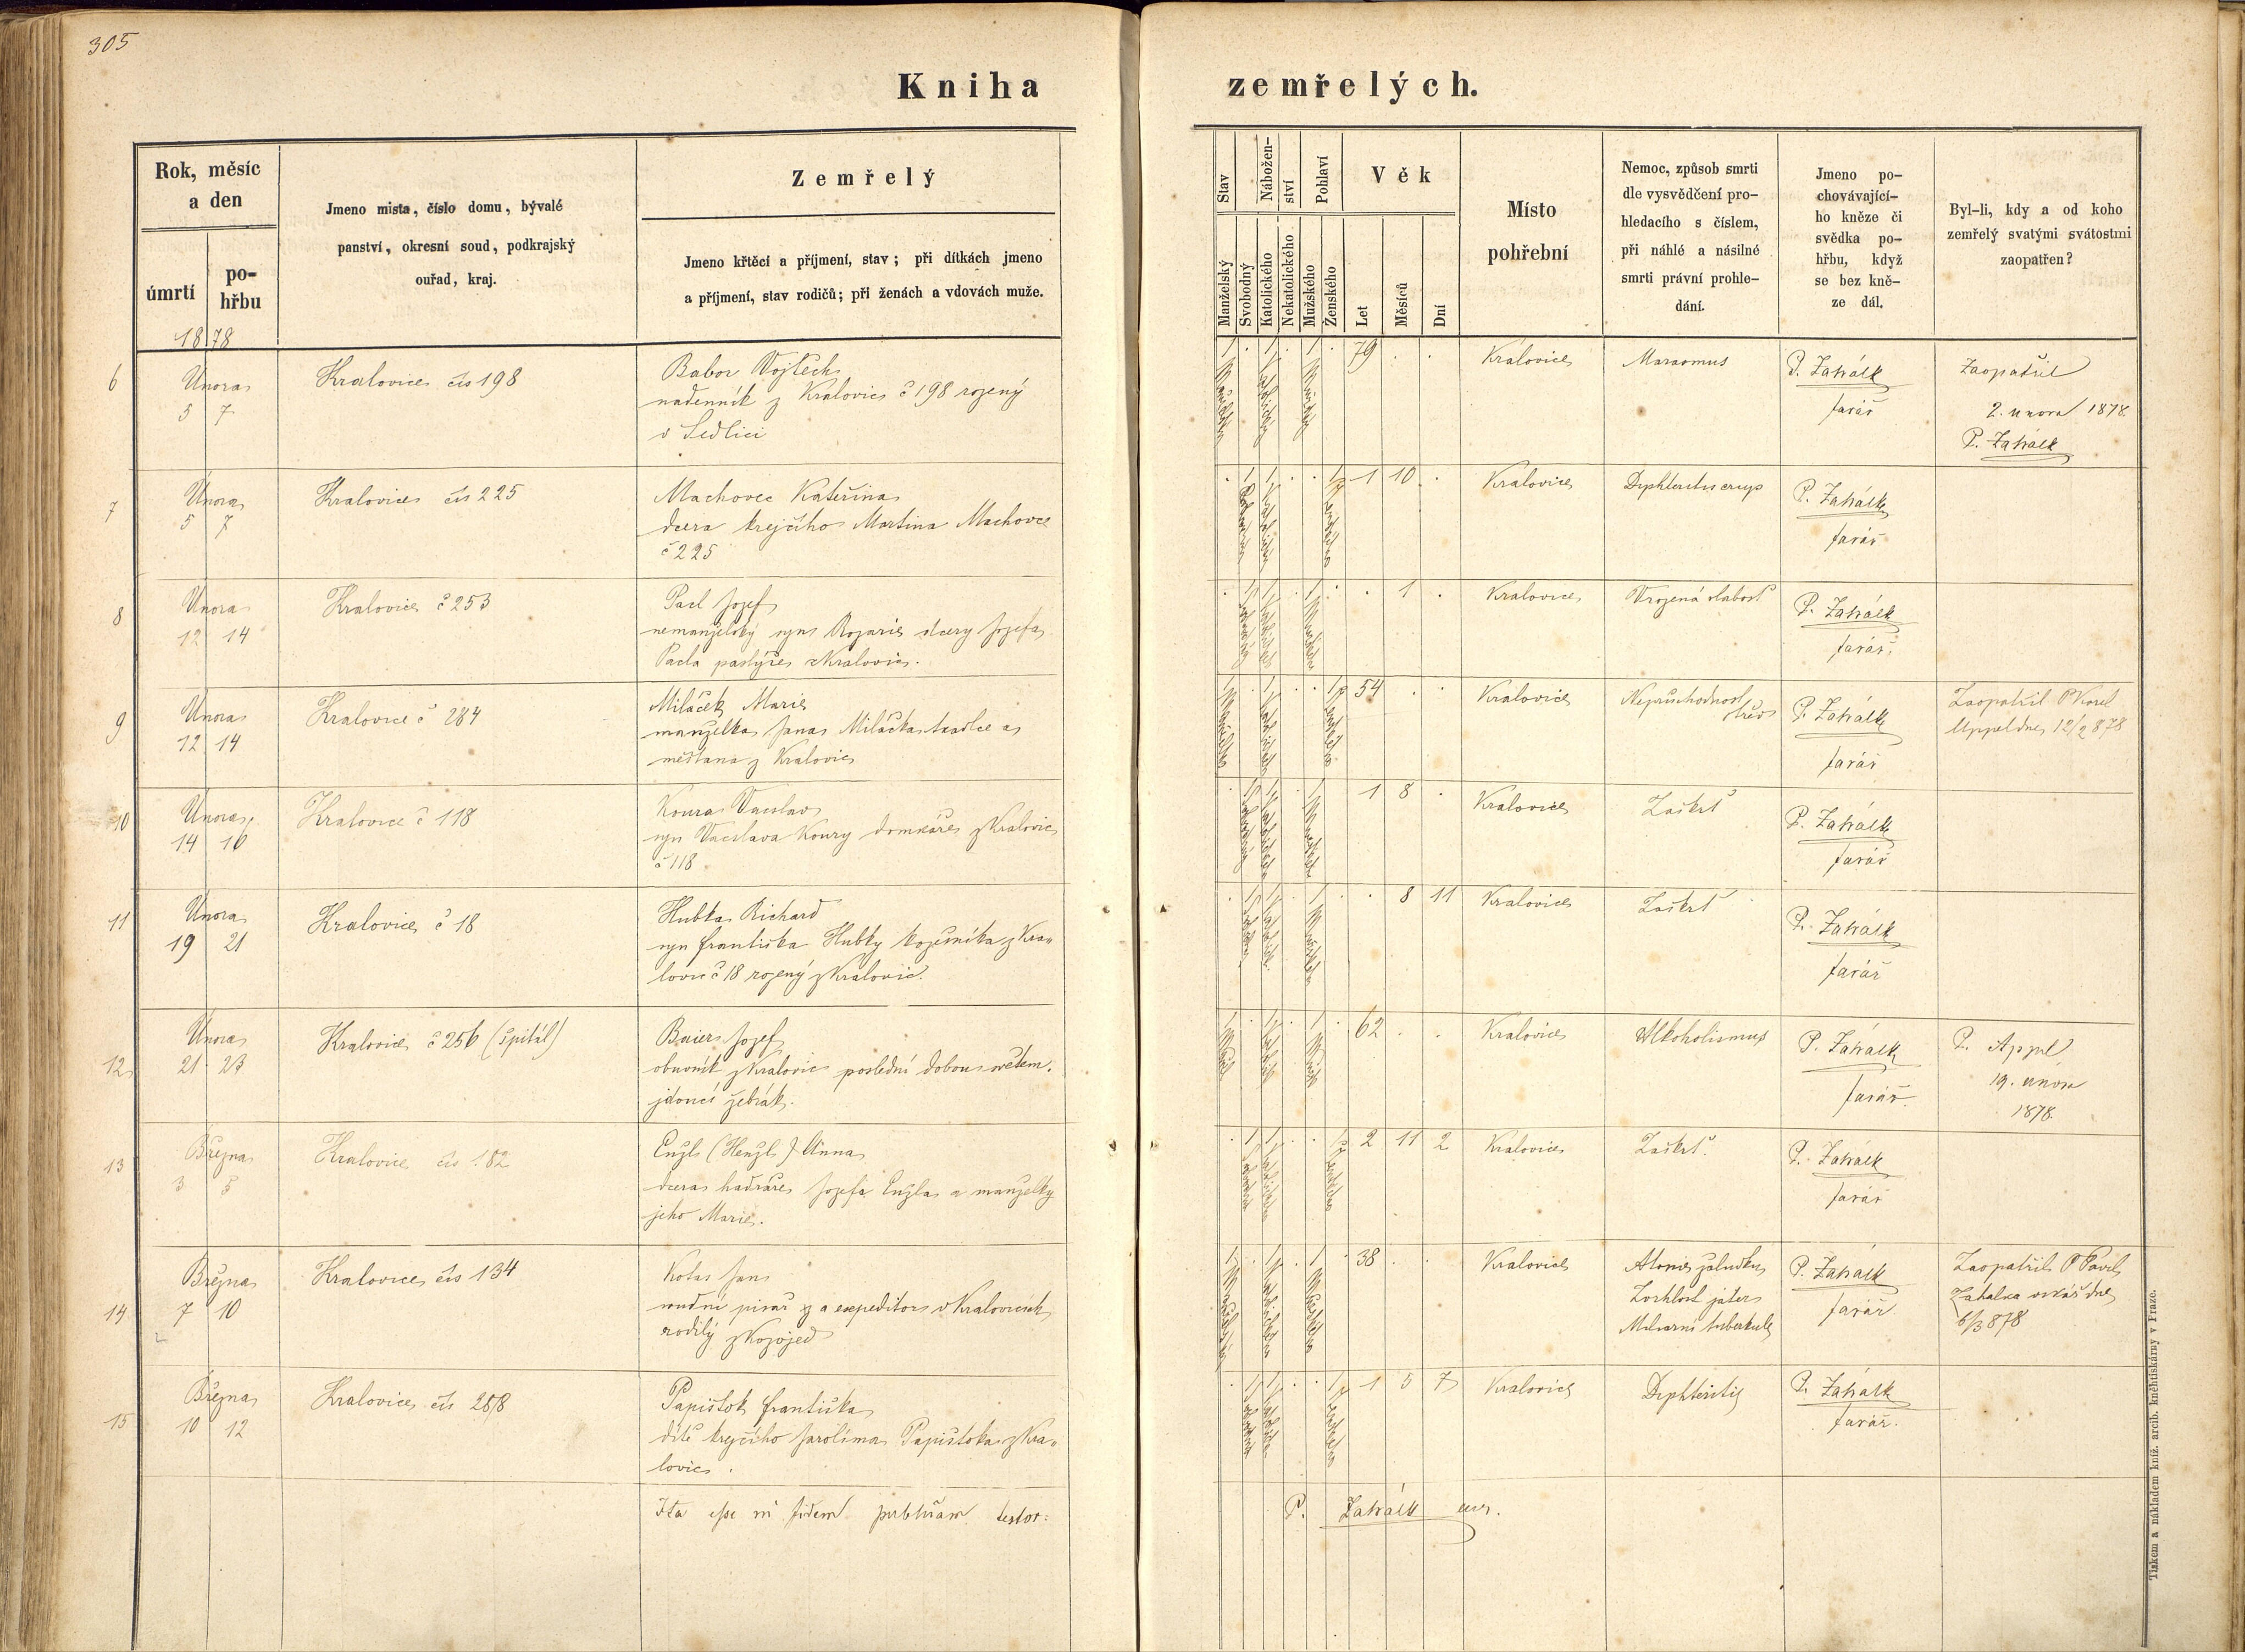 305
Kniha zemřelých.
Rok, měsíc a den
úmrtí
pohřbu
Jmeno mista, číslo domu, bývalé
panství, okresní soud, podkrajský
ouřad, kraj.
Zemřelý
Jmeno křtěcí a příjmení, stav; při dítkách jmeno
a příjmení, stav rodičů; při ženách a vdovách muže.
Stav
Manželský
Svobodný
Nábožen-
ství
Katolického
Nekatolického
Pohlaví
Mužského
Ženského
Věk
Let
Měsíců
Dní
Místo
pohřební
Nemoc, způsob smrti
dle vysvědčení pro-
hledacího s číslem,
při náhlé a násilné
smrti právní prohle-
dání.
Jmeno po-
chovávající-
ho kněze či
svědka po-
hřbu, když
se bez kně-
ze dál.
Byl-li, kdy a od koho
zemřelý svatými svátostmi
zaopatřen?
1878
6 Února 5 7 Kralovice čís 198
Babor Vojtěch
nadenník z Kralovic č 198 rozený
v Sedlici
79 Kralovice Marasmus P. Zahálk farář
Zaopatřil
2. února 1878.
P. Zahálk
7 Února 5 7 Kralovice čís 225
Machovec Kateřina
dcera krejčího Martina Machovce
č 225
1 10 Kralovice P. Zahálk farář
8 Února 12 14 Kralovice č 253
Pacl Jozef
nemanželský syn Rozarie dcery Jozefa
Pacla pastýře z Kralovic.
1 Kralovice Vrozená slabost P. Zahálk farář.
9 Února 12 14 Kralovice č 284
Miláček Marie
manželka Jana Miláčka tkadlce a
měšťana z Kralovic
54 Kralovice Neprůchodnost střev P. Zahálk farář
Zaopatřil P Karel
Appel dne 12/2 878
10 Února 14 16 Kralovice č 118
Koura Vácslav
syn Vácslava Koury domkáře z Kralovic
č 118
1 8 Kralovice Záškrt P. Zahálk farář
11 Února 19 21 Kralovice č 18
Hubka Richard
syn Františka Hubky kožešníka z Kra-
lovic č 18 rozený z Kralovic.
8 11 Kralovice Záškrt P. Zahálk farář
12 Února 21 23 Kralovice č 256 (špitál)
Baier Jozef
obuvník z Kralovic poslední dobou světem
jdoucí žebrák.
62 Kralovice Alkoholismus P. Zahálk farář.
P. Appel
19. února
1878.
13 Března 3 5 Kralovice čís 182
Enžl (Henžl) Anna
dcera hadráře Jozefa Enžla a manželky
jeho Marie.
2 11 2 Kralovice Záškrt. P. Zahálk farář
14 Března 7 10 Kralovice čís 134
Kolas Jan
soudní písař a expeditor v Kralovicích
rodilý z Kožojed
38 Kralovice
Atonie žaludku
jater
Miliarní tuberkule
P. Zahálk farář
Zaopatřil P Pavel
Zahálka dne
6/3 878
15 Března 10 12 Kralovice čís 258
Papištok Františka
dítě krejčího Jarolíma Papištoka z Kra-
lovic.
1 5 7 Kralovice Diphteritis P. Zahálk farář.
Ita esse in fidem publicam testor:
P. Zahálk
Tiskem a nákladem kníž. arcib. kněhtiskárny v Praze.